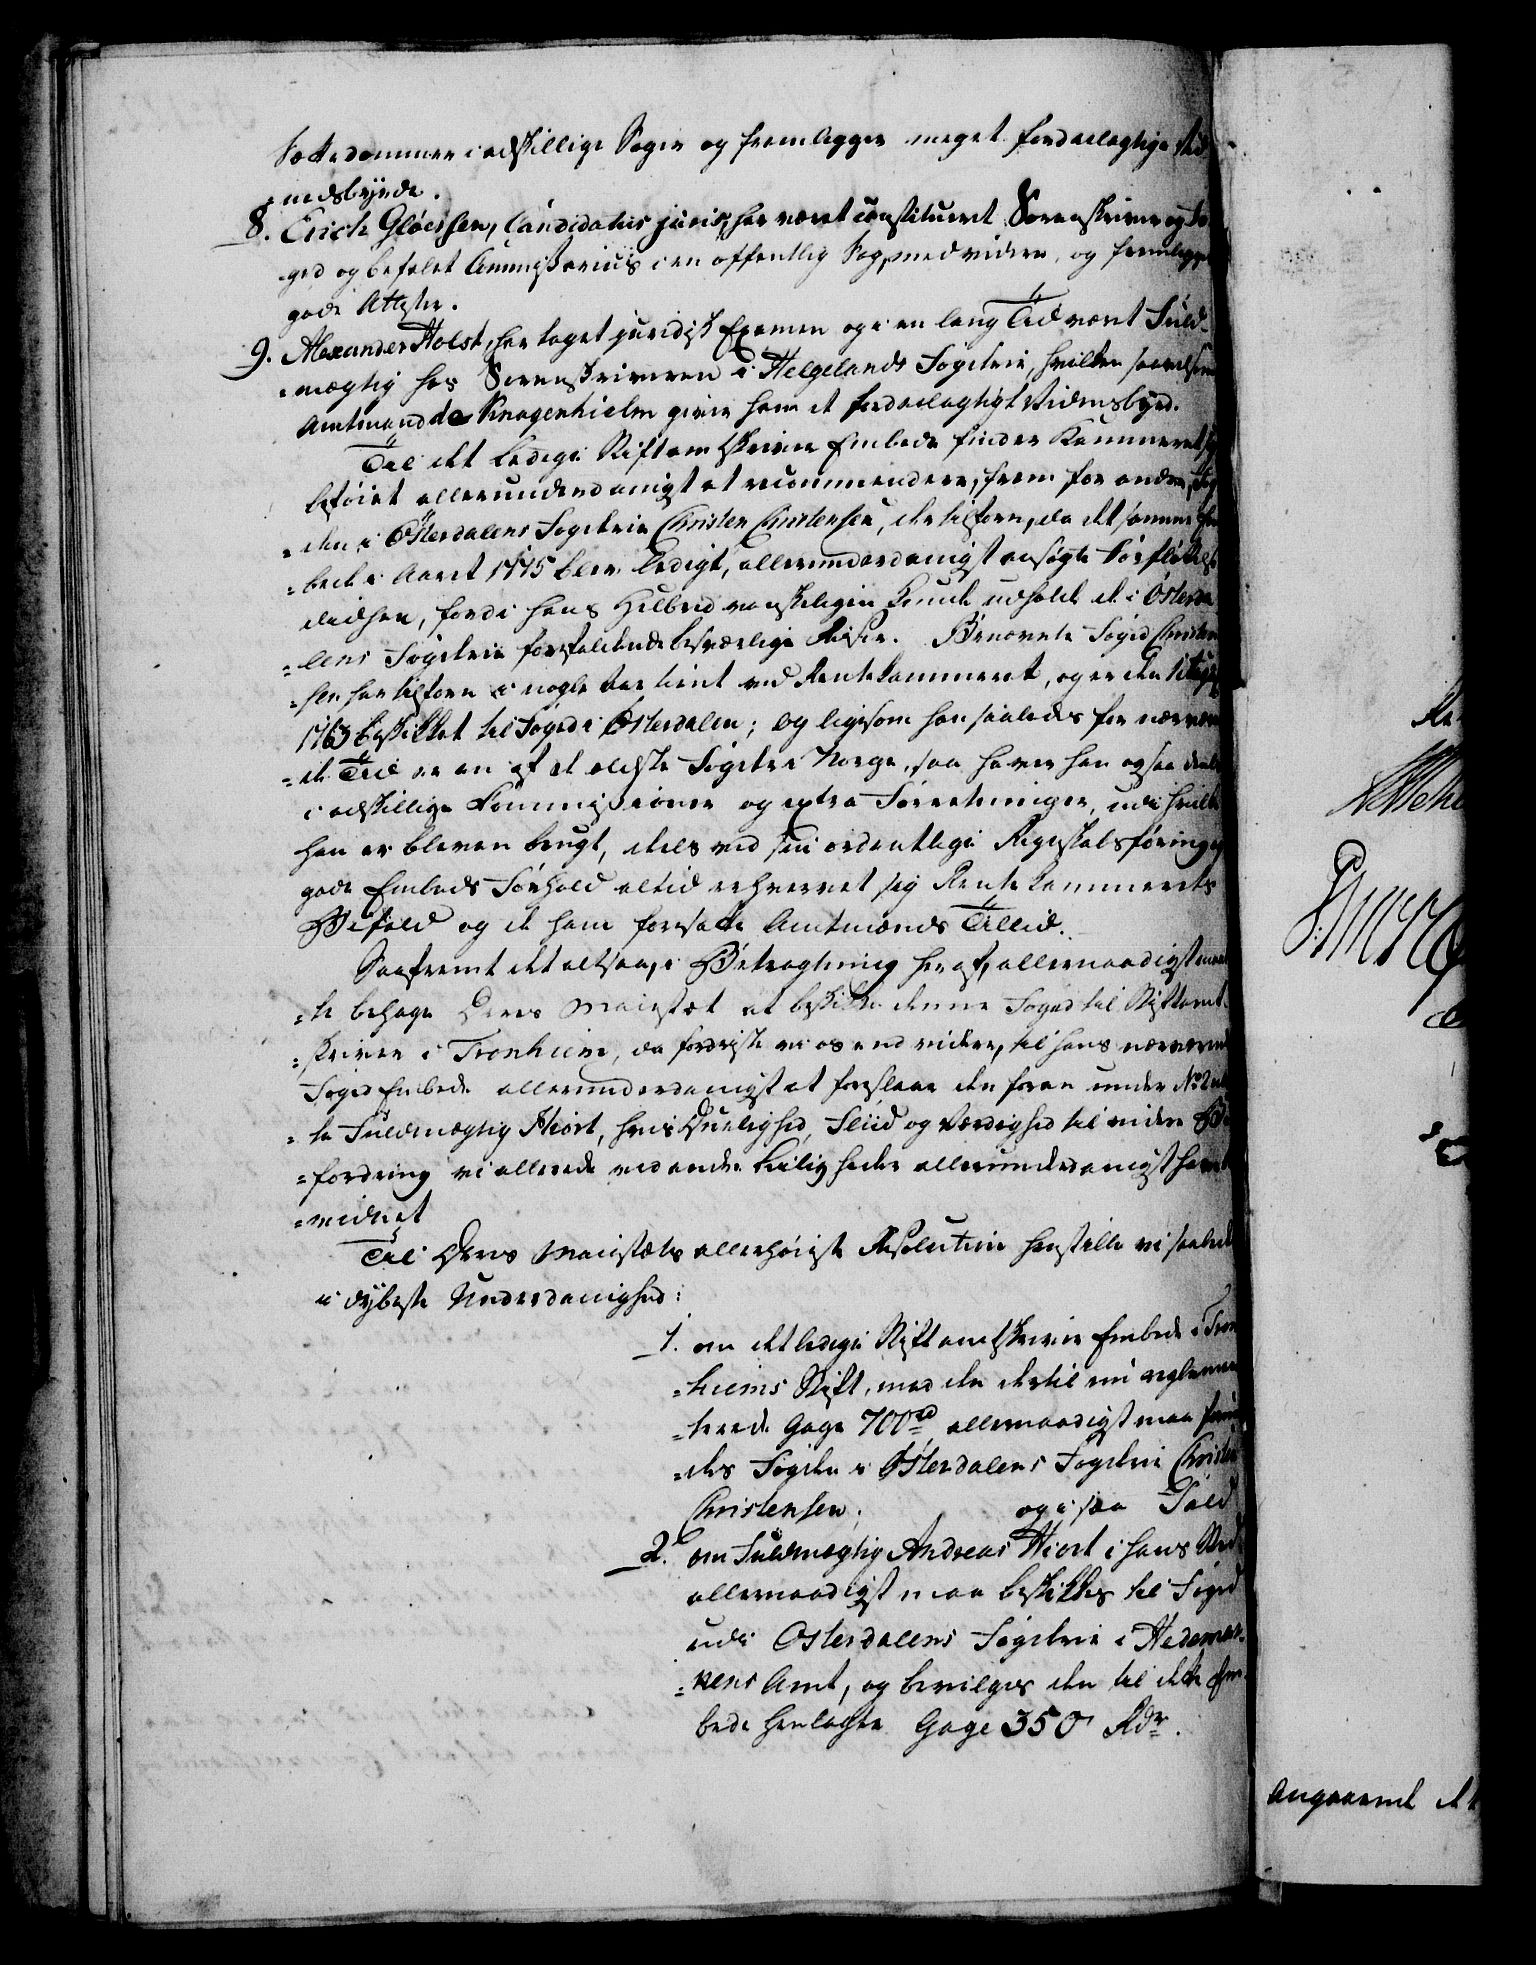 Sættedommer i adskillige Sager og fremlegger meget fordeelagtige Vid-
=nesbyrde.
8. Erich Gløersen, Candidatus juris, har været constitueret Sorenskriver og Fo-
ged og befalet Commissarius i en offentlig Sag, med videre, og fremlegger
gode Attester.
9. Alexander Holst, har taget juridisk Examen og i en lang Tid været Fuld-
=mægtig hos Sorenskriveren i Helgelands Fogderie, hvilken saavelsom
Amtmand de Knagenhielm giver ham et fordeelagtigt Vidnesbyrd.
Til det ledige Stiftamtskriver Embede finder Kammeret sig
beføiet allerunderdanigst at recommendere, frem for andre, Fog-
=den i Østerdalens Fogderie Christen Christensen, der tilforn, da det samme Em-
=bede i Aaret 1775 blev ledigt, allerunderdanigst ansøgte Forflyttelse
dertil, fordi hans Helbred vanskeligen kunde udholde de i Østerda-
=lens Fogderie forefaldende besværlige Reiser. Benævnte Foged Christen-
=sen har tilforn i nogle Aar tient ved Rentekammeret, og er den
1763 beskikket til Foged i Østerdalen; og ligesom han saaledes for nærværen-
=de Tid er en af de ældste Fogder i Norge, saa haver han ogsaa deels
i adskillige Commissioner og extra Forretninger, udi hvilke
han er bleven brugt, deels ved sin ordentlige Regnskabsføring og
gode Embeds Forhold altid erhvervet sig Rentekammerets
Bifald og de ham foresatte Amtmænds Tillid.
Saafremt det altsaa, i Betragtning heraf, allernaadigst maat-
=te behage Deres Majestæt at beskikke denne Foged til Stiftamt-
=skriver i Tronhiem, da fordriste vi os end videre, til hans nærværende
Foged Embede allerunderdanigst at foreslaae den foran under No 2 [...]
=te Fuldmægtig Hiort, hvis Duelighed, Fliid og Værdighed til videre Be-
=fordring vi allerede ved andre Leiligheder allerunderdanigst have be-
=vidnet
Til Deres Majestæts allerhøieste Resolution henstille vi saaledes
i dybeste Underdanighed:
1. om det ledige Stiftamtskriver Embede i Tron-
=hiems Stift, med den dertil nu reglemen-
=terede Gage 700 rd allernaadigst maa forun-
=des Fogden i Østerdalens Fogderie Christen
Christensen; og i saa Fald
2. om Fuldmægtig Andreas Hiort i hans Sted
allernaadigst maa beskikkes til Foged
udi Østerdalens Fogderie i Hedemar-
=kens Amt, og bevilges den til dette Em-
bede henlagte Gage 350 Rdr.
Angaaende det